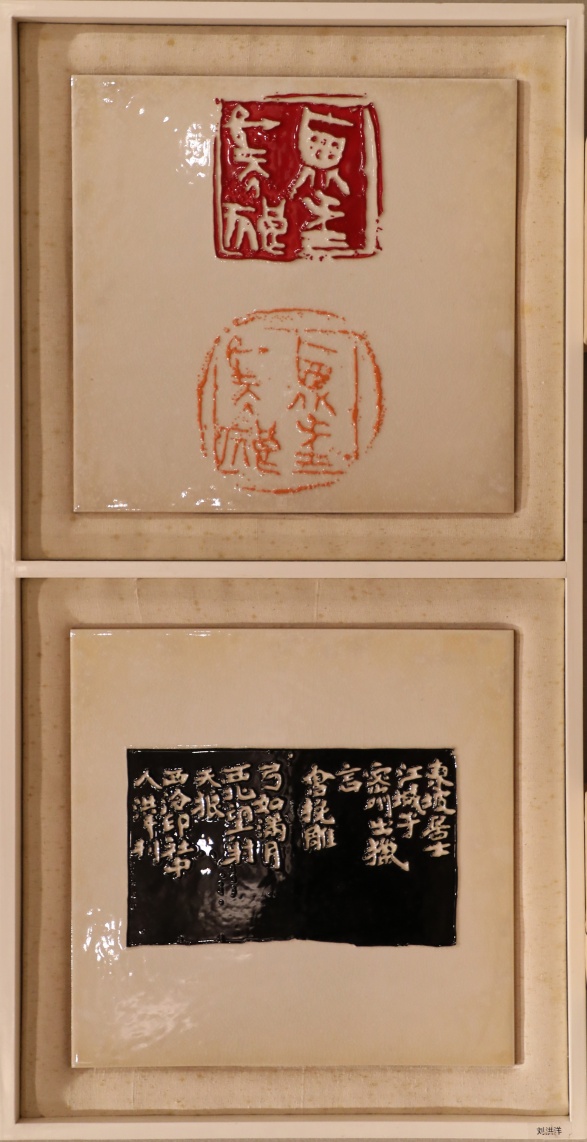 東坡居士
江城子
密州出獵
言
會挽雕
弓如滿月
西北望射
天狼
西泠印社中
人洪洋刊
刘洪洋